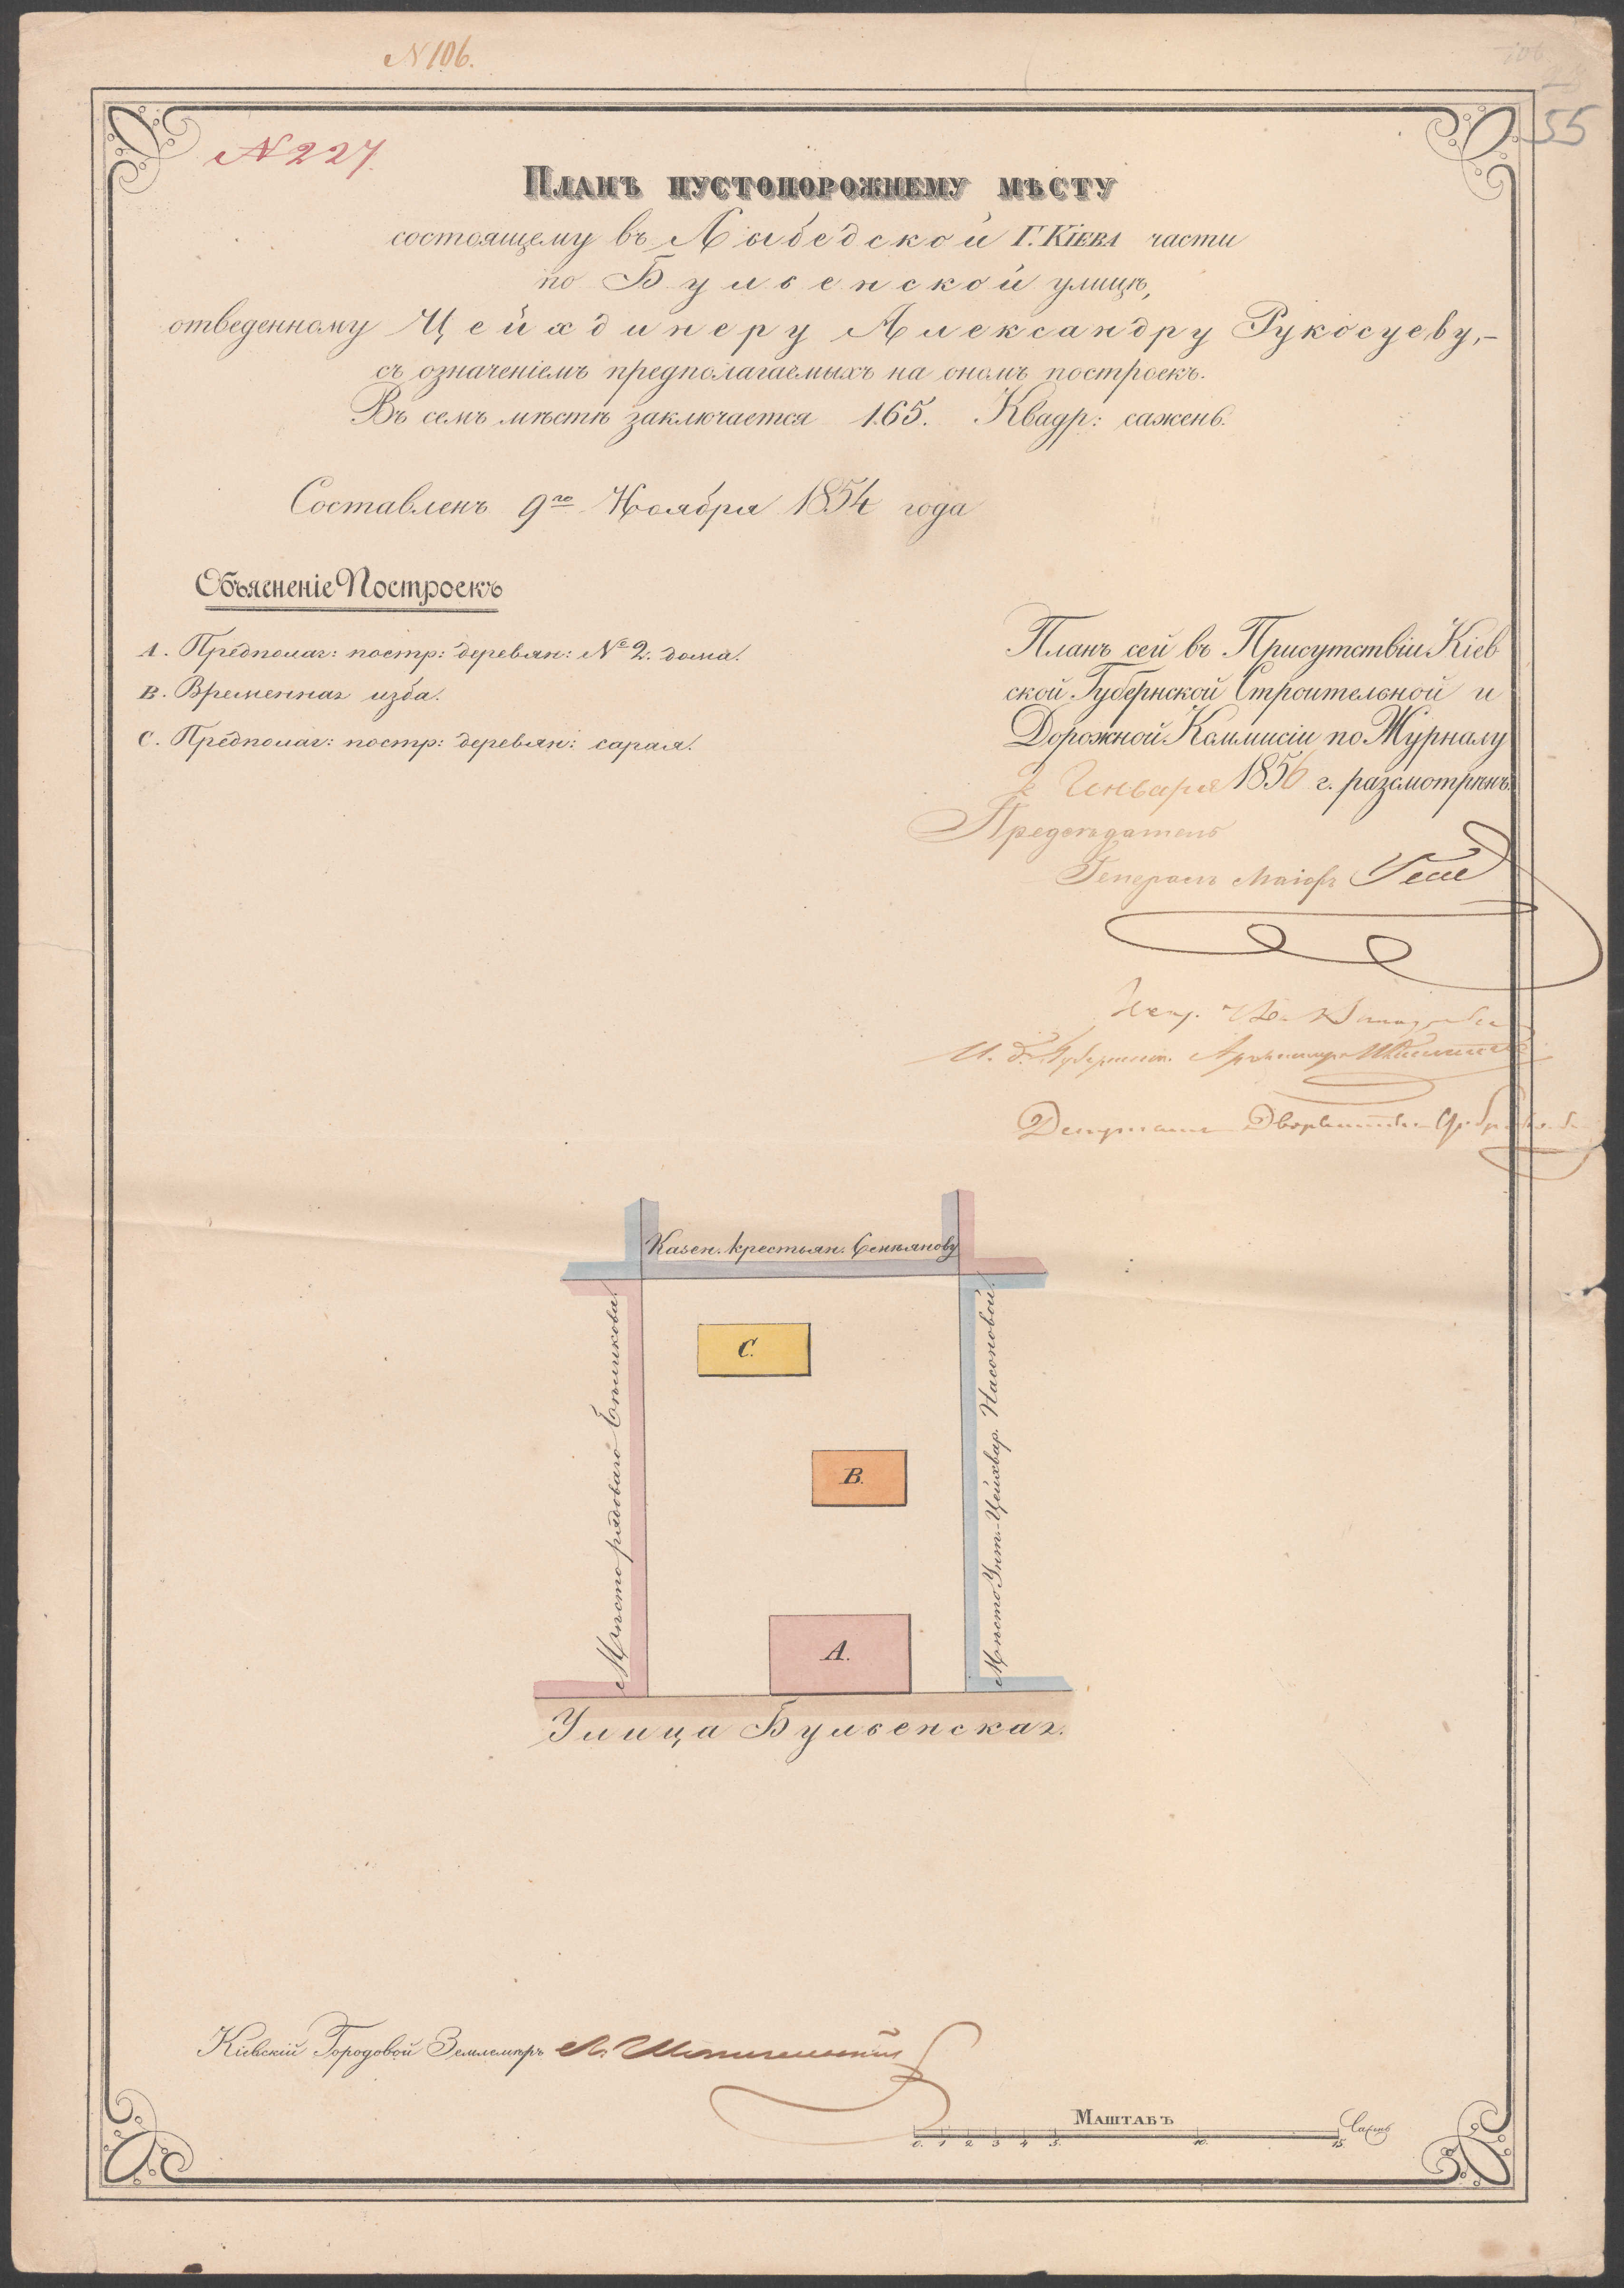 N 106.
55
N 227.
Планъ пустопорожнему мѣсту
состоящему въ Лыбедской Г. Кіева части
по Бульенской улицѣ,
отведенному Цейхдинеру Александру Рукосуеву,–
съ означеніемъ предполагаемыхъ на ономъ построекъ.
Въ семъ мѣстѣ заключается 165. Квадр: сажень.
Составленъ 9го Ноября 1854 года
Объясненіе Построекъ
А. Предполаг: постр: деревян: № 2. дома.
В. Временная изба.
С. Предполаг: постр: деревян: сарая.
Планъ сей въ Присутствіи Кіев
ской Губернской Строительной и
Дорожной Коммисіи по Журналу
2 Генваря 1856 г. разсмотрѣнъ.
Предсѣдатель
Генералъ Маіоръ Гессе
И. д. Губернск. Архитектора
Депутатъ Дворянства
Казен. крестьян. Сенянову
Мѣсто рядоваго Бѣликова.
Мѣсто Унт.-Цейхвар. Насоновой.
С.
В.
А.
Улица Бульенская.
Кіевскій Городовой Землемѣръ
Маштабъ
Сажень
0. 1 2 3 4 5. 10. 15.